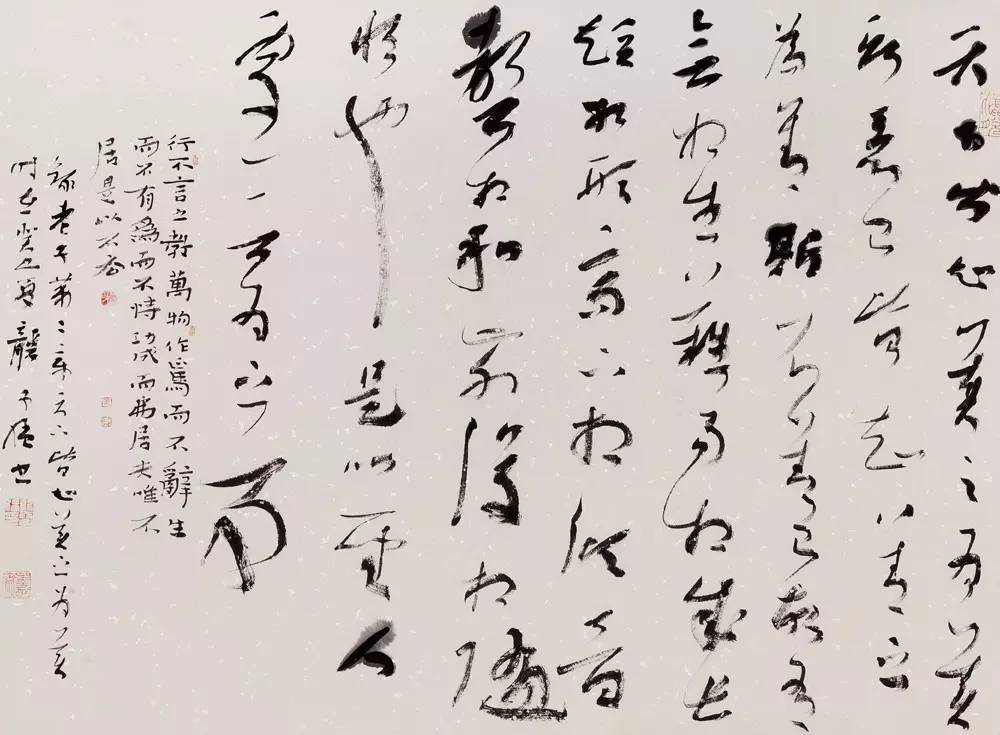 天下皆知美之为美
斯惡已皆知善之
為善斯不善已故有
無相生難易相成長
短相形高下相傾音
聲相和前後相隨
恒也是以聖人
處無为之事
行不言之教萬物作焉而不辭生
而不有為而不恃功成而弗居夫唯不
居是以不去
錄老子第二章天下皆知美之为美
时在癸巳夏